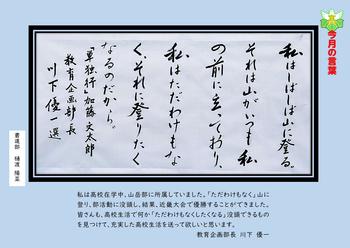 今月の言葉
私はしばしば山に登る。
それは山がいつも私
の前に立っており、
私はただわけもな
く、それに登りたく
なるのだから。
『単独行』加藤文太郎
教育企画部長
川下優一選
書道部 樋渡 陽菜
私は高校在学中、山岳部に所属していました。「ただわけもなく」山に
登り、部活動に没頭し、結果、近畿大会で優勝することができました。
皆さんも、高校生活で何か「ただわけもなくしたくなる」没頭できるもの
を見つけて、充実した高校生活を送って欲しいと思います。
教育企画部長 川下 優一